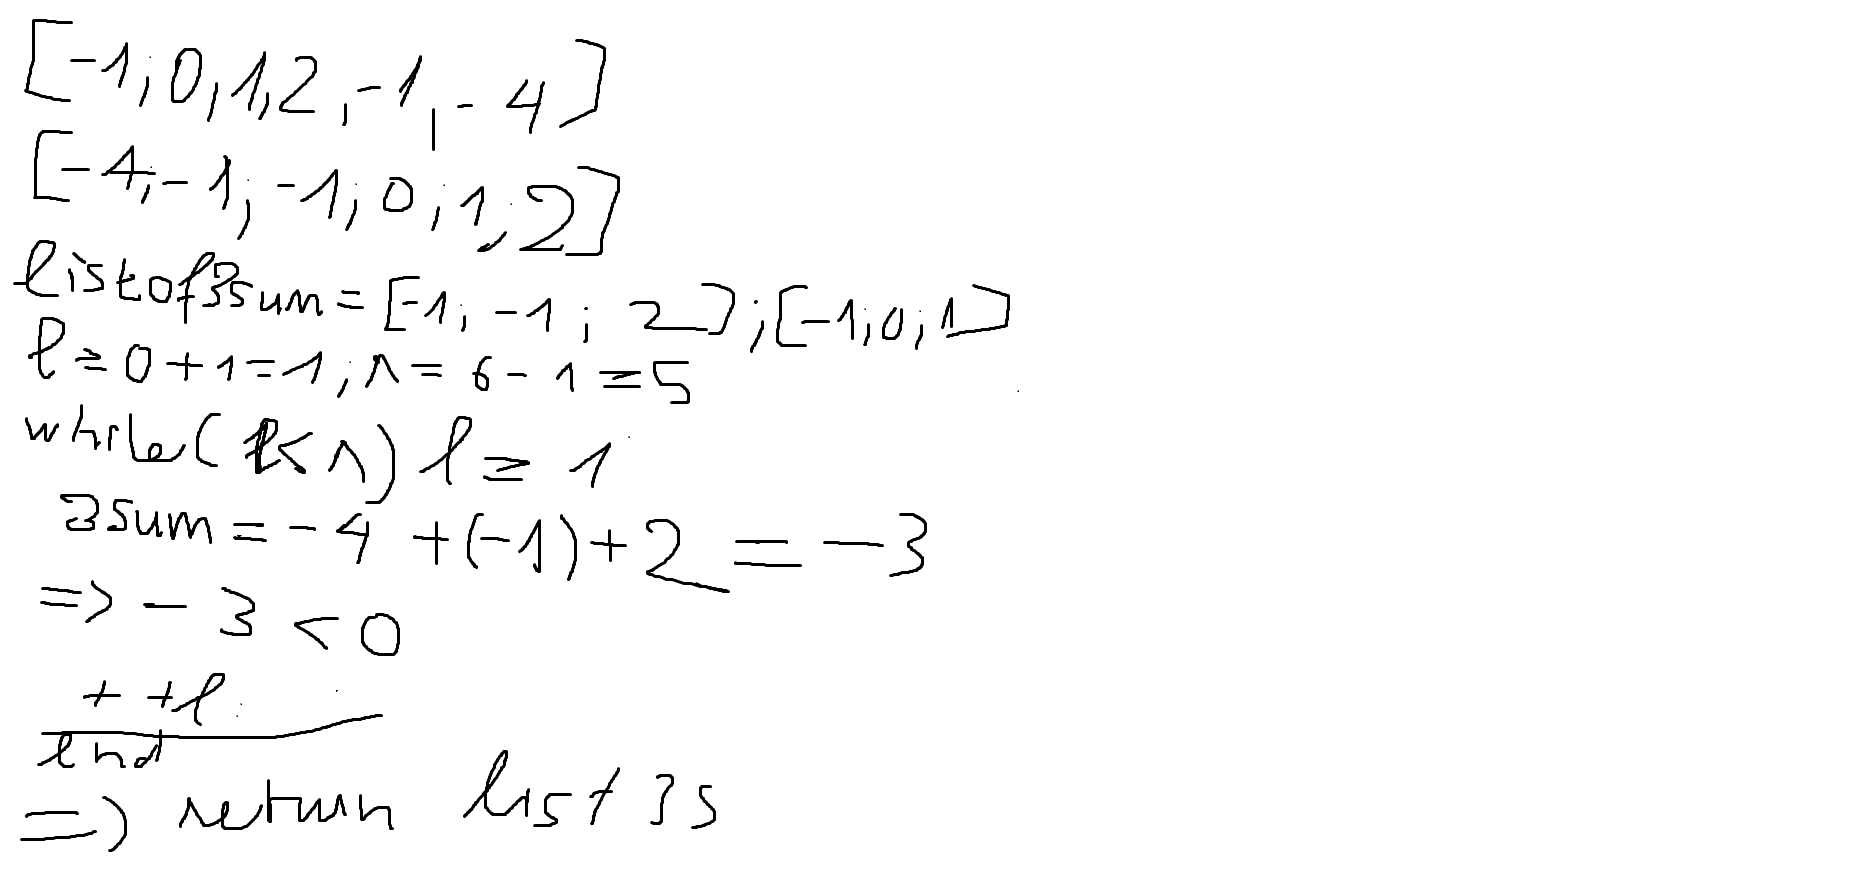 [-1;0,1,2,-1,-4]
[-4;-1;-1;0;1,2]
listof3sum=[-1;-1;2];[-1;0;1]
l=0+1=1;r=6-1=5
while(l<r) l=1
3sum=-4+(-1)+2=-3
=>-3<0
++l
end
=> return list3s